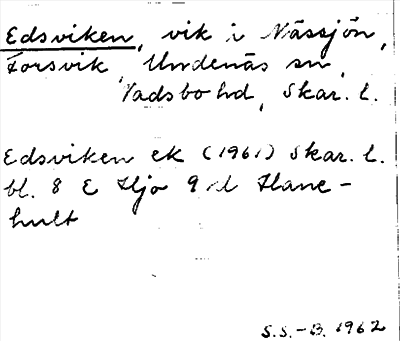 Edsviken, vik i Nässjön,
Forsvik, Undenäs sn,
Vadsbo hd, Skar. l.
Edsviken ek (1961) Skar. l.
bl. 8 E Hjo 9 d Hane-
hult
S.S.-B. 1962